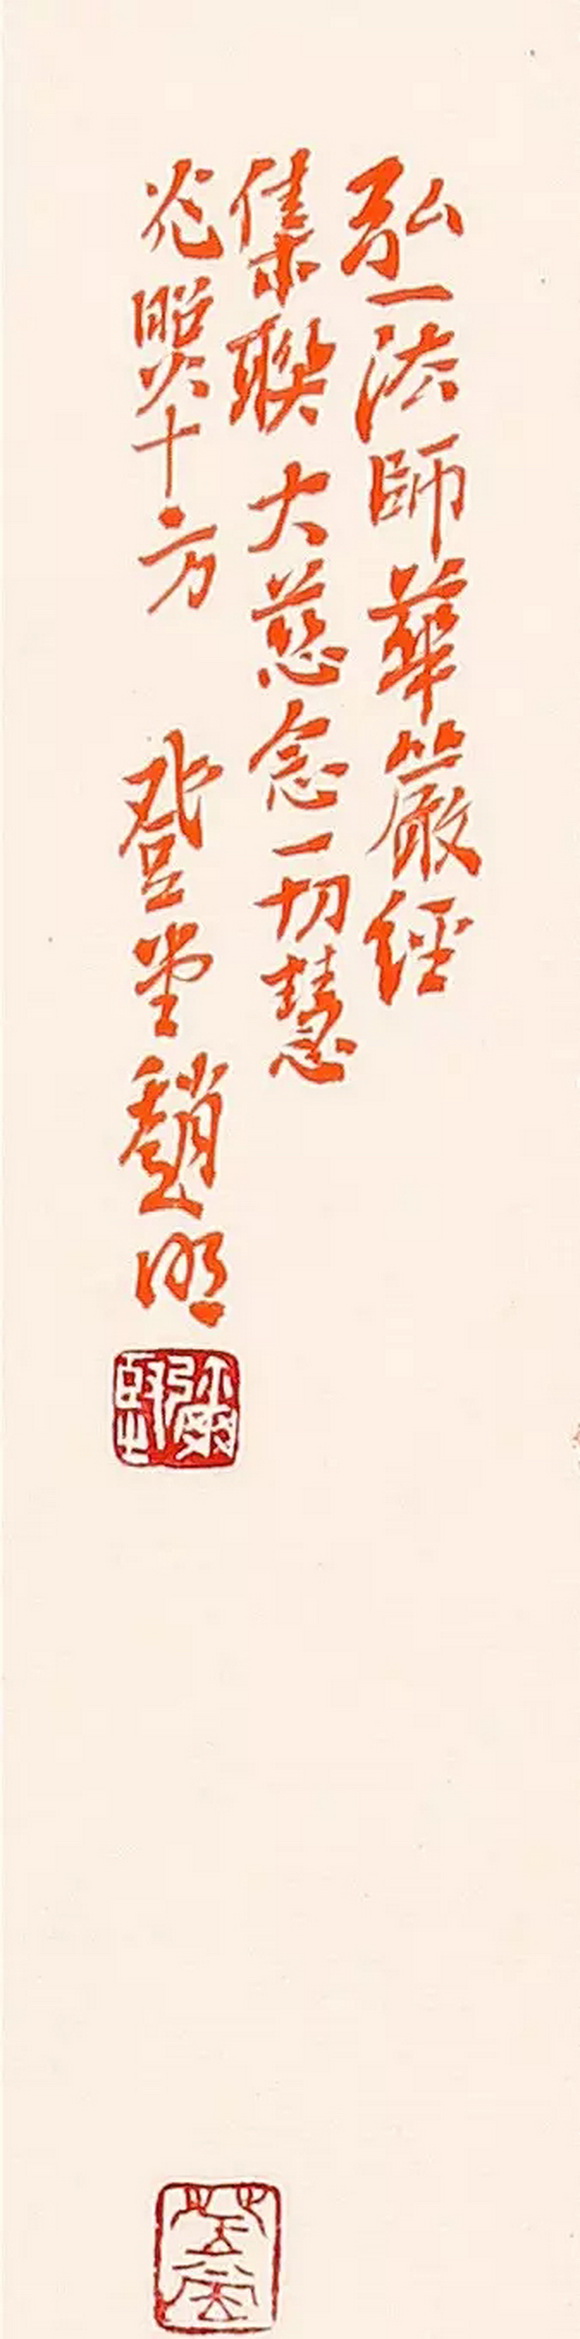 弘一法師華嚴經
集聯大慈念一切慧
光照十方 登堂趙明
登堂